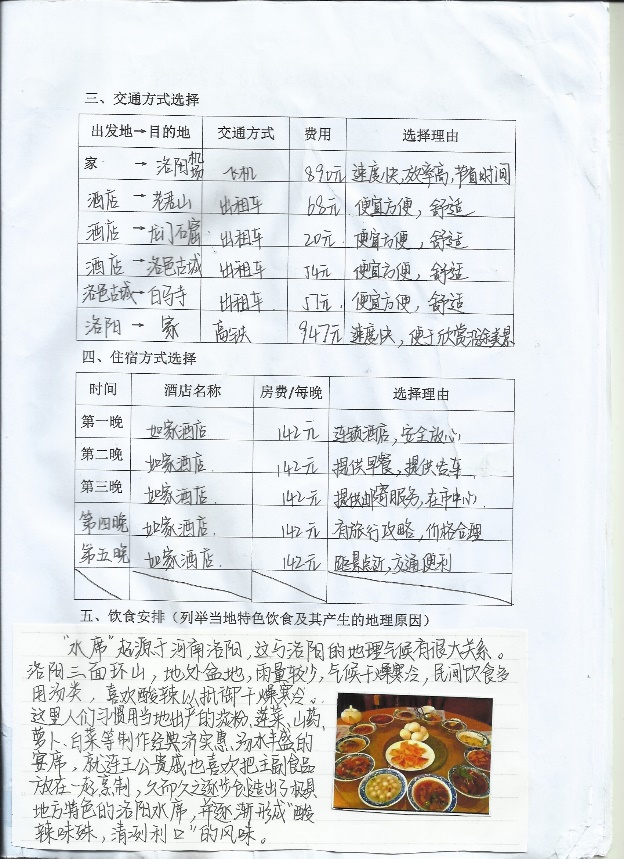 三、交通方式选择
出发地→目的地 交通方式 费用 选择理由
家 → 洛阳机场 飞机 890元 速度快,效率高,节省时间
酒店 → 老君山 出租车 68元 便宜方便,舒适
酒店 → 龙门石窟 出租车 20元 便宜方便,舒适
酒店 → 洛邑古城 出租车 54元 便宜方便,舒适
洛邑古城→白马寺 出租车 57元 便宜方便,舒适
洛阳 → 家 高铁 947元 速度快,便于欣赏沿途美景
四、住宿方式选择
时间 酒店名称 房费/每晚 选择理由
第一晚 如家酒店 142元 连锁酒店,安全放心
第二晚 如家酒店. 142元 提供早餐,提供专车
第三晚 如家酒店. 142元 提供邮寄服务,在市中心.
第四晚 如家酒店. 142元 有旅行攻略,价格合理
第五晚 如家酒店. 142元 距景点近,交通便利
五、饮食安排(列举当地特色饮食及其产生的地理原因)
“水席”起源于河南洛阳,这与洛阳的地理气候有很大关系。
洛阳三面环山,地处盆地,雨量较少,气候干燥寒冷,民间饮食多
用汤类,喜欢酸辣以抵御干燥寒冷。
这里人们习惯用当地出产的淀粉、莲菜、山药、
萝卜、白菜等制作经典济实惠、汤水丰盛的
宴席,就连王公贵戚也喜欢把主副食品
放在一起烹制,久而久之逐步创造出了极具
地方特色的洛阳水席,并逐渐形成“酸
辣味殊,清爽利口”的风味。